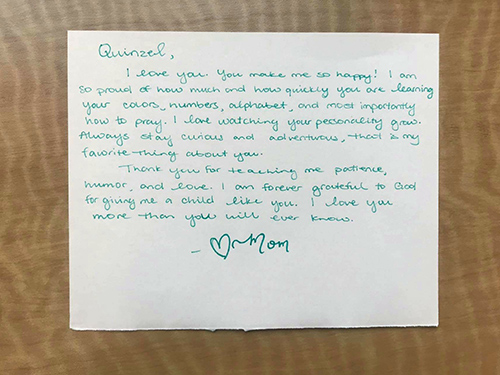 Quinzel,
I love you. You make me so happy! I am
so proud of how much and how quickly you are learning
your colors, numbers, alphabet, and most importantly
how to pray. I love watching your personality grow.
Always stay curious and adventurous, that is my
favorite thing about you.
Thank you for teaching me patience,
humor, and love. I am forever grateful to God
for giving me a child like you. I love you
more than you will ever know.
- ♡~Mom